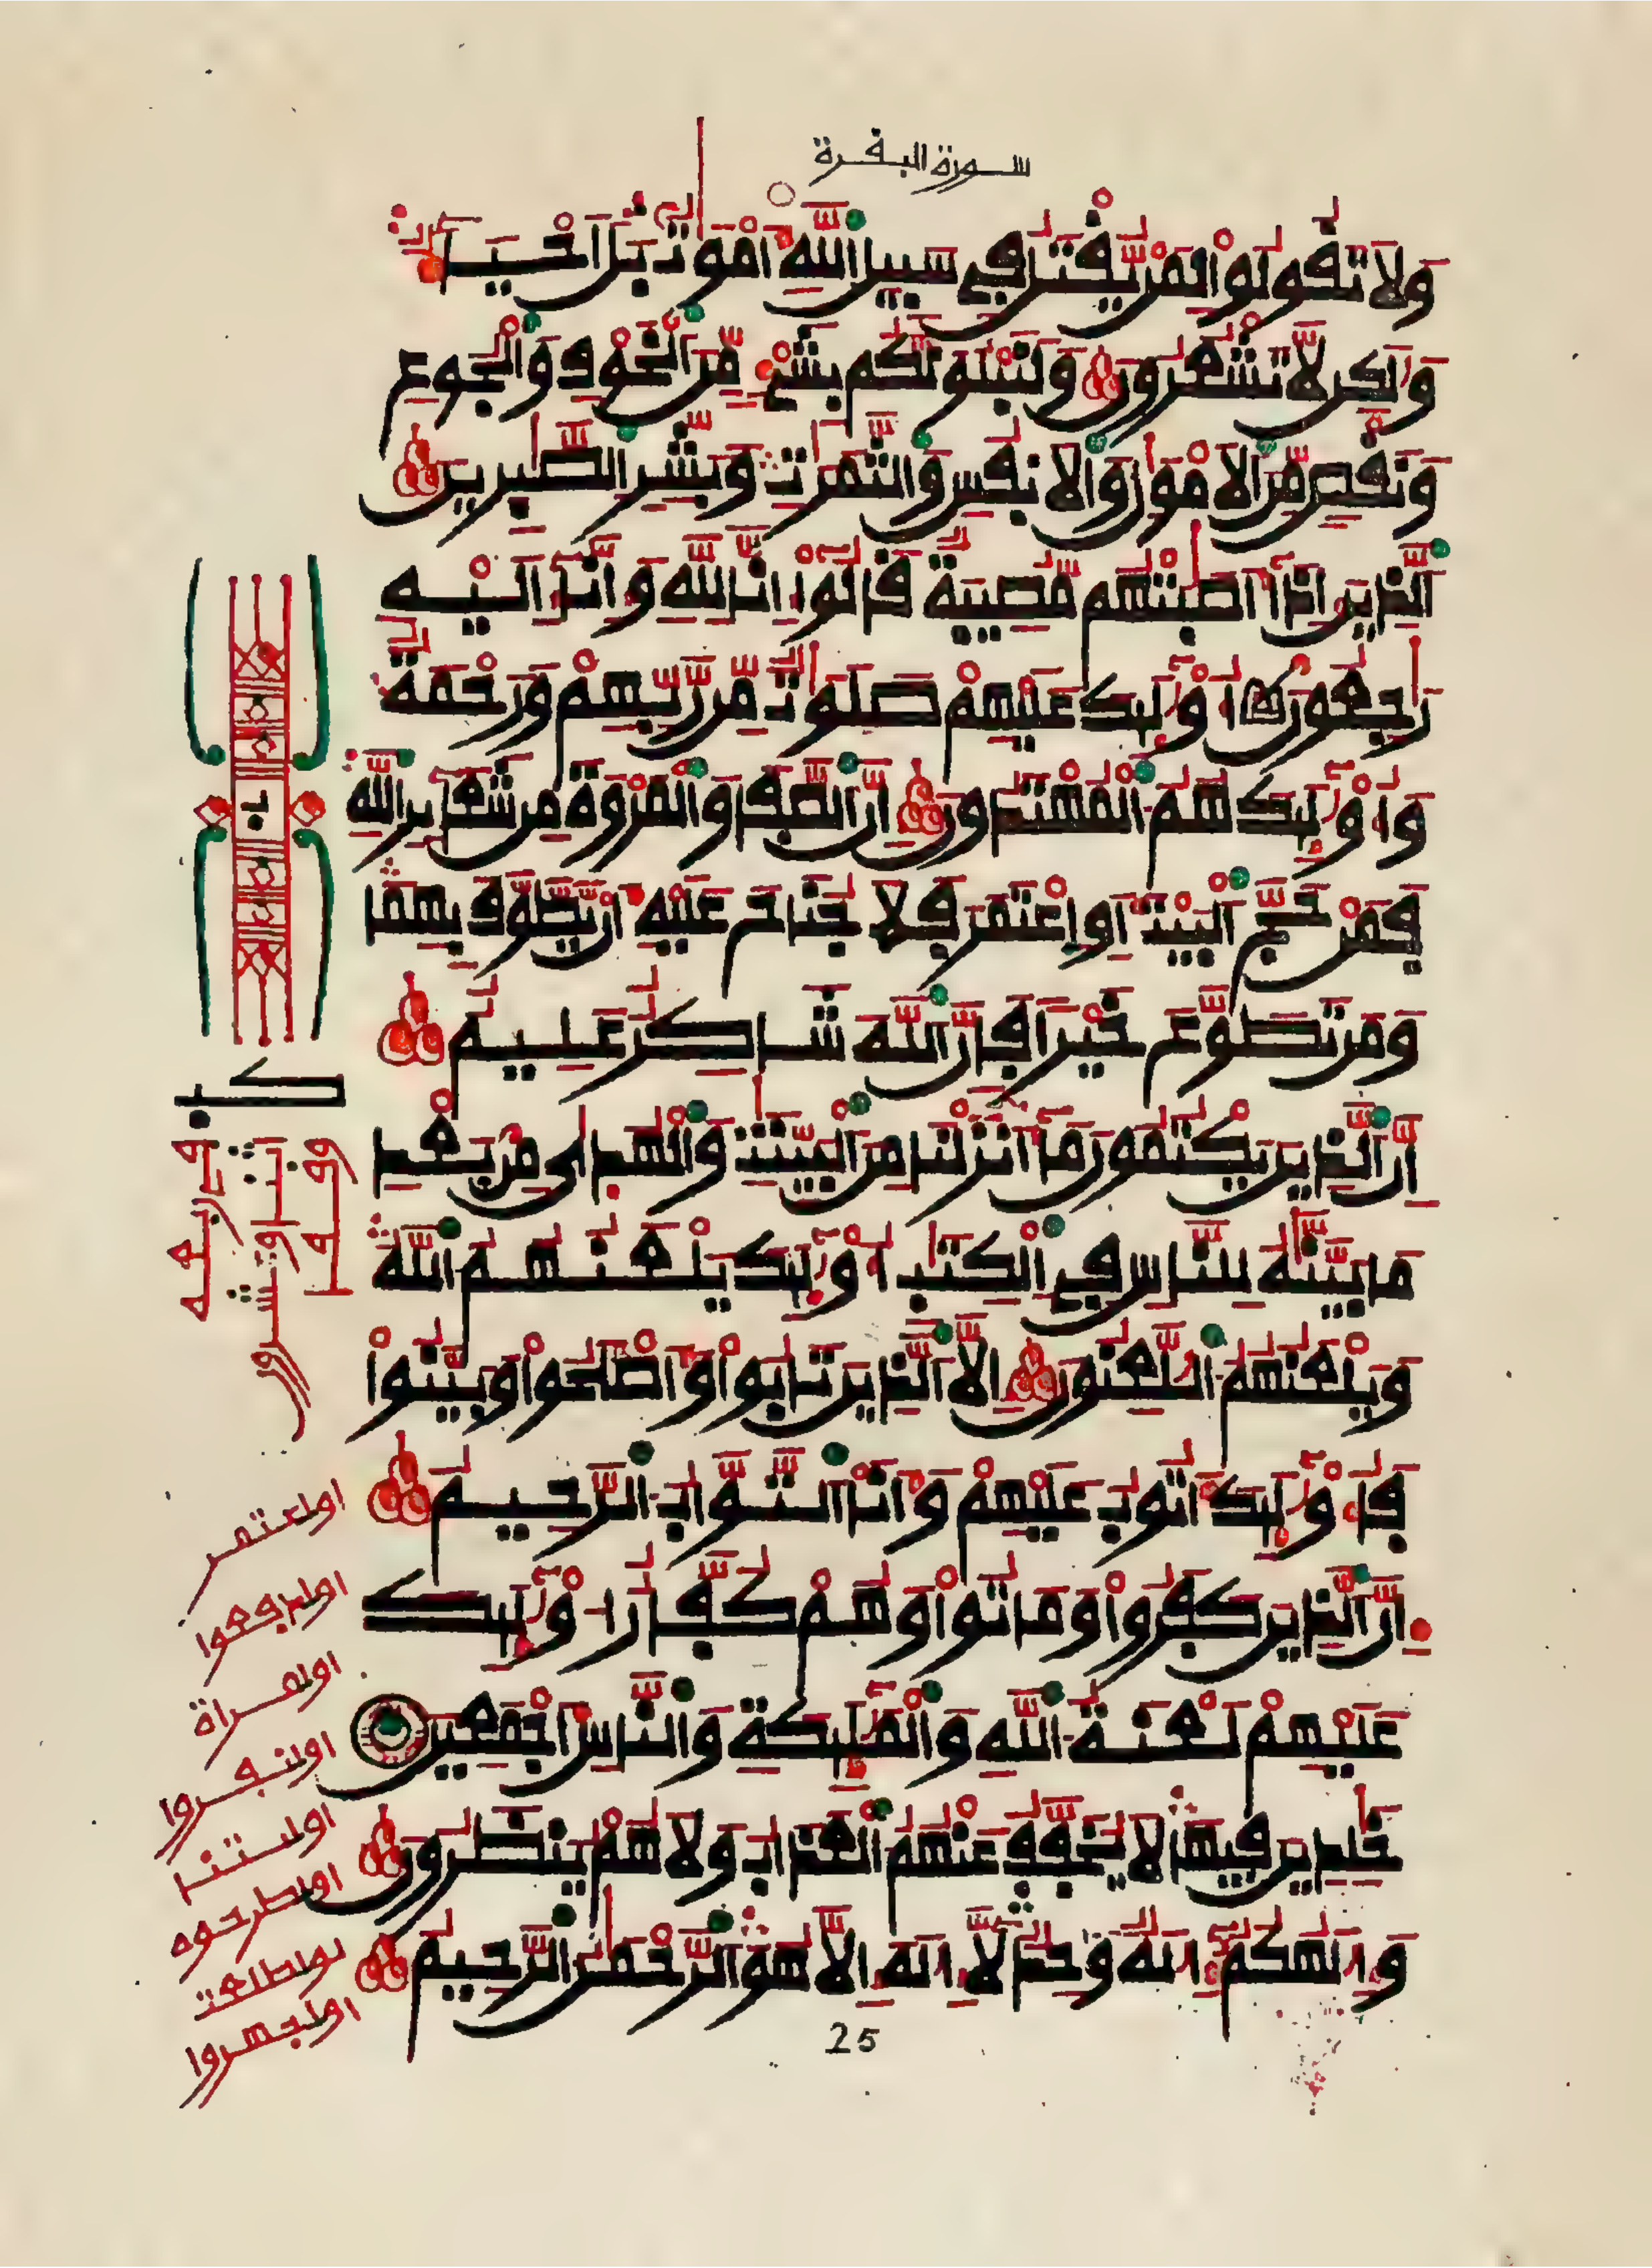 سورة البقرة
وَلَا تَقُولُواْ لِمَنْ يُّقْتَلُ فِي سَبِيلِ اِ۬للَّهِ أَمْوَٰتٌۢ بَلَ اَحْيَآءٌ
وَلَٰكِن لَّا تَشْعُرُونَ وَلَنَبْلُوَنَّكُم بِشَےْءٍ مِّنَ اَ۬لْخَوْفِ وَالْجُوعِ
وَنَقْصٍ مِّنَ اَ۬لَامْوَٰلِ وَالَانفُسِ وَالثَّمَرَٰتِ وَبَشِّرِ اِ۬لصَّٰبِرِينَ
اَ۬لذِينَ إِذَآ أَصَٰبَتْهُم مُّصِيبَةٌ قَالُوٓاْ إِنَّا لِلهِ وَإِنَّآ إِلَيْهِ
رَٰجِعُونَ أُوْلَٰٓئِكَ عَلَيْهِمْ صَلَوَٰتٌ مِّن رَّبِّهِمْ وَرَحْمَةٌ
وَأُوْلَٰٓئِكَ هُمُ اُ۬لْمُهْتَدُونَ إِنَّ اَ۬لصَّفَا وَالْمَرْوَةَ مِن شَعَآئِرِ اِ۬للَّهِ
فَمَنْ حَجَّ اَ۬لْبَيْتَ أَوِ اِ۪عْتَمَرَ فَلَا جُنَاحَ عَلَيْهِ أَنْ يَّطَّوَّفَ بِهِمَا
وَمَن تَطَوَّعَ خَيْراً فَإِنَّ اَ۬للَّهَ شَاكِرٌ عَلِيمٌ
إِنَّ اَ۬لذِينَ يَكْتُمُونَ مَآ أَنزَلْنَا مِنَ اَ۬لْبَيِّنَٰتِ وَالْهُد۪ىٰ مِنۢ بَعْدِ
مَا بَيَّنَّٰهُ لِلنَّاسِ فِي اِ۬لْكِتَٰبِ أُوْلَٰٓئِكَ يَلْعَنُهُمُ اُ۬للَّهُ
وَيَلْعَنُهُمُ اُ۬للَّٰعِنُونَ إِلَّا اَ۬لذِينَ تَابُواْ وَأَصْلَحُواْ وَبَيَّنُواْ
فَأُوْلَٰٓئِكَ أَتُوبُ عَلَيْهِمْ وَأَنَا اَ۬لتَّوَّابُ اُ۬لرَّحِيمُ
إِنَّ اَ۬لذِينَ كَفَرُواْ وَمَاتُواْ وَهُمْ كُفَّارٌ ا۟وْلَٰٓئِكَ
عَلَيْهِمْ لَعْنَةُ اُ۬للَّهِ وَالْمَلَٰٓئِكَةِ وَالنَّاسِ أَجْمَعِينَ
خَٰلِدِينَ فِيهَا لَا يُخَفَّفُ عَنْهُمُ اُ۬لْعَذَابُ وَلَا هُمْ يُنظَرُونَ
وَإِلَٰهُكُمُۥٓ إِلَٰهٌ وَٰحِدٌ لَّآ إِلَٰهَ إِلَّا هُوَ اَ۬لرَّحْمَٰنُ اُ۬لرَّحِيمُ
25
اواعتمر
اوادفعوا
اوامراة
اوانفروا
اوائتنا
اواطرحوه
لواطلعت
اواجهروا